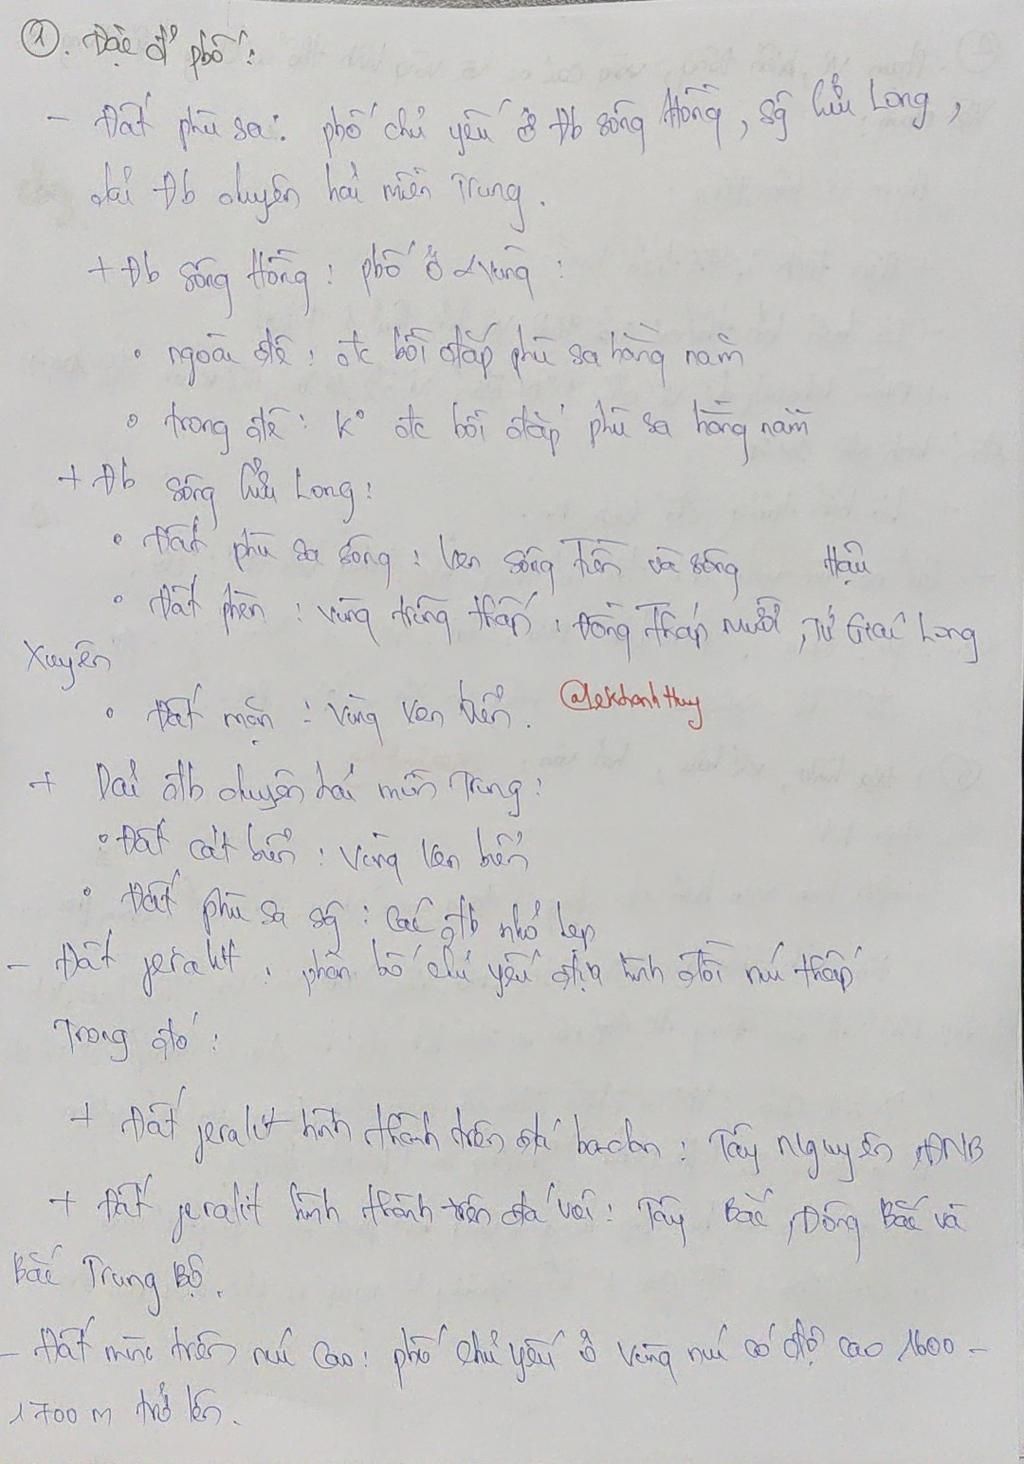 ①. Đặc đ' phbố:
- Đất phù sa: phbố chủ yếu ở Đb sông Hồng, sg Cửu Long,
dải Đb duyên hải miền Trung.
+ Đb sông Hồng: phbố ở 2 vùng:
• ngoài đê: đc bồi đắp phù sa hằng năm
• trong đê: K° đc bồi đắp phù sa hằng năm
+ Đb sông Cửu Long:
• Đất phù sa sông: Ven sông Tiền và sông Hậu
• Đất phèn: vùng trũng thấp: Đồng Tháp Mười, Tứ Giác Long
Xuyên
• Đất mặn: Vùng Ven biển. @lekhanhthuy
+ Dải đb duyên hải miền Trung:
• Đất cát biển: Vùng Ven biển
• Đất phù sa sg: Các đb nhỏ hẹp
- Đất feralit: phân bố chủ yếu địa hình đồi núi thấp
Trong đó:
+ Đất feralit hình thành trên đá badan: Tây Nguyên, ĐNB
+ Đất feralit hình thành trên đá vôi: Tây Bắc, Đông Bắc và
Bắc Trung Bộ.
- Đất mùn trên núi cao: phbố chủ yếu ở vùng núi có độ cao 1600 -
1700 m trở lên.